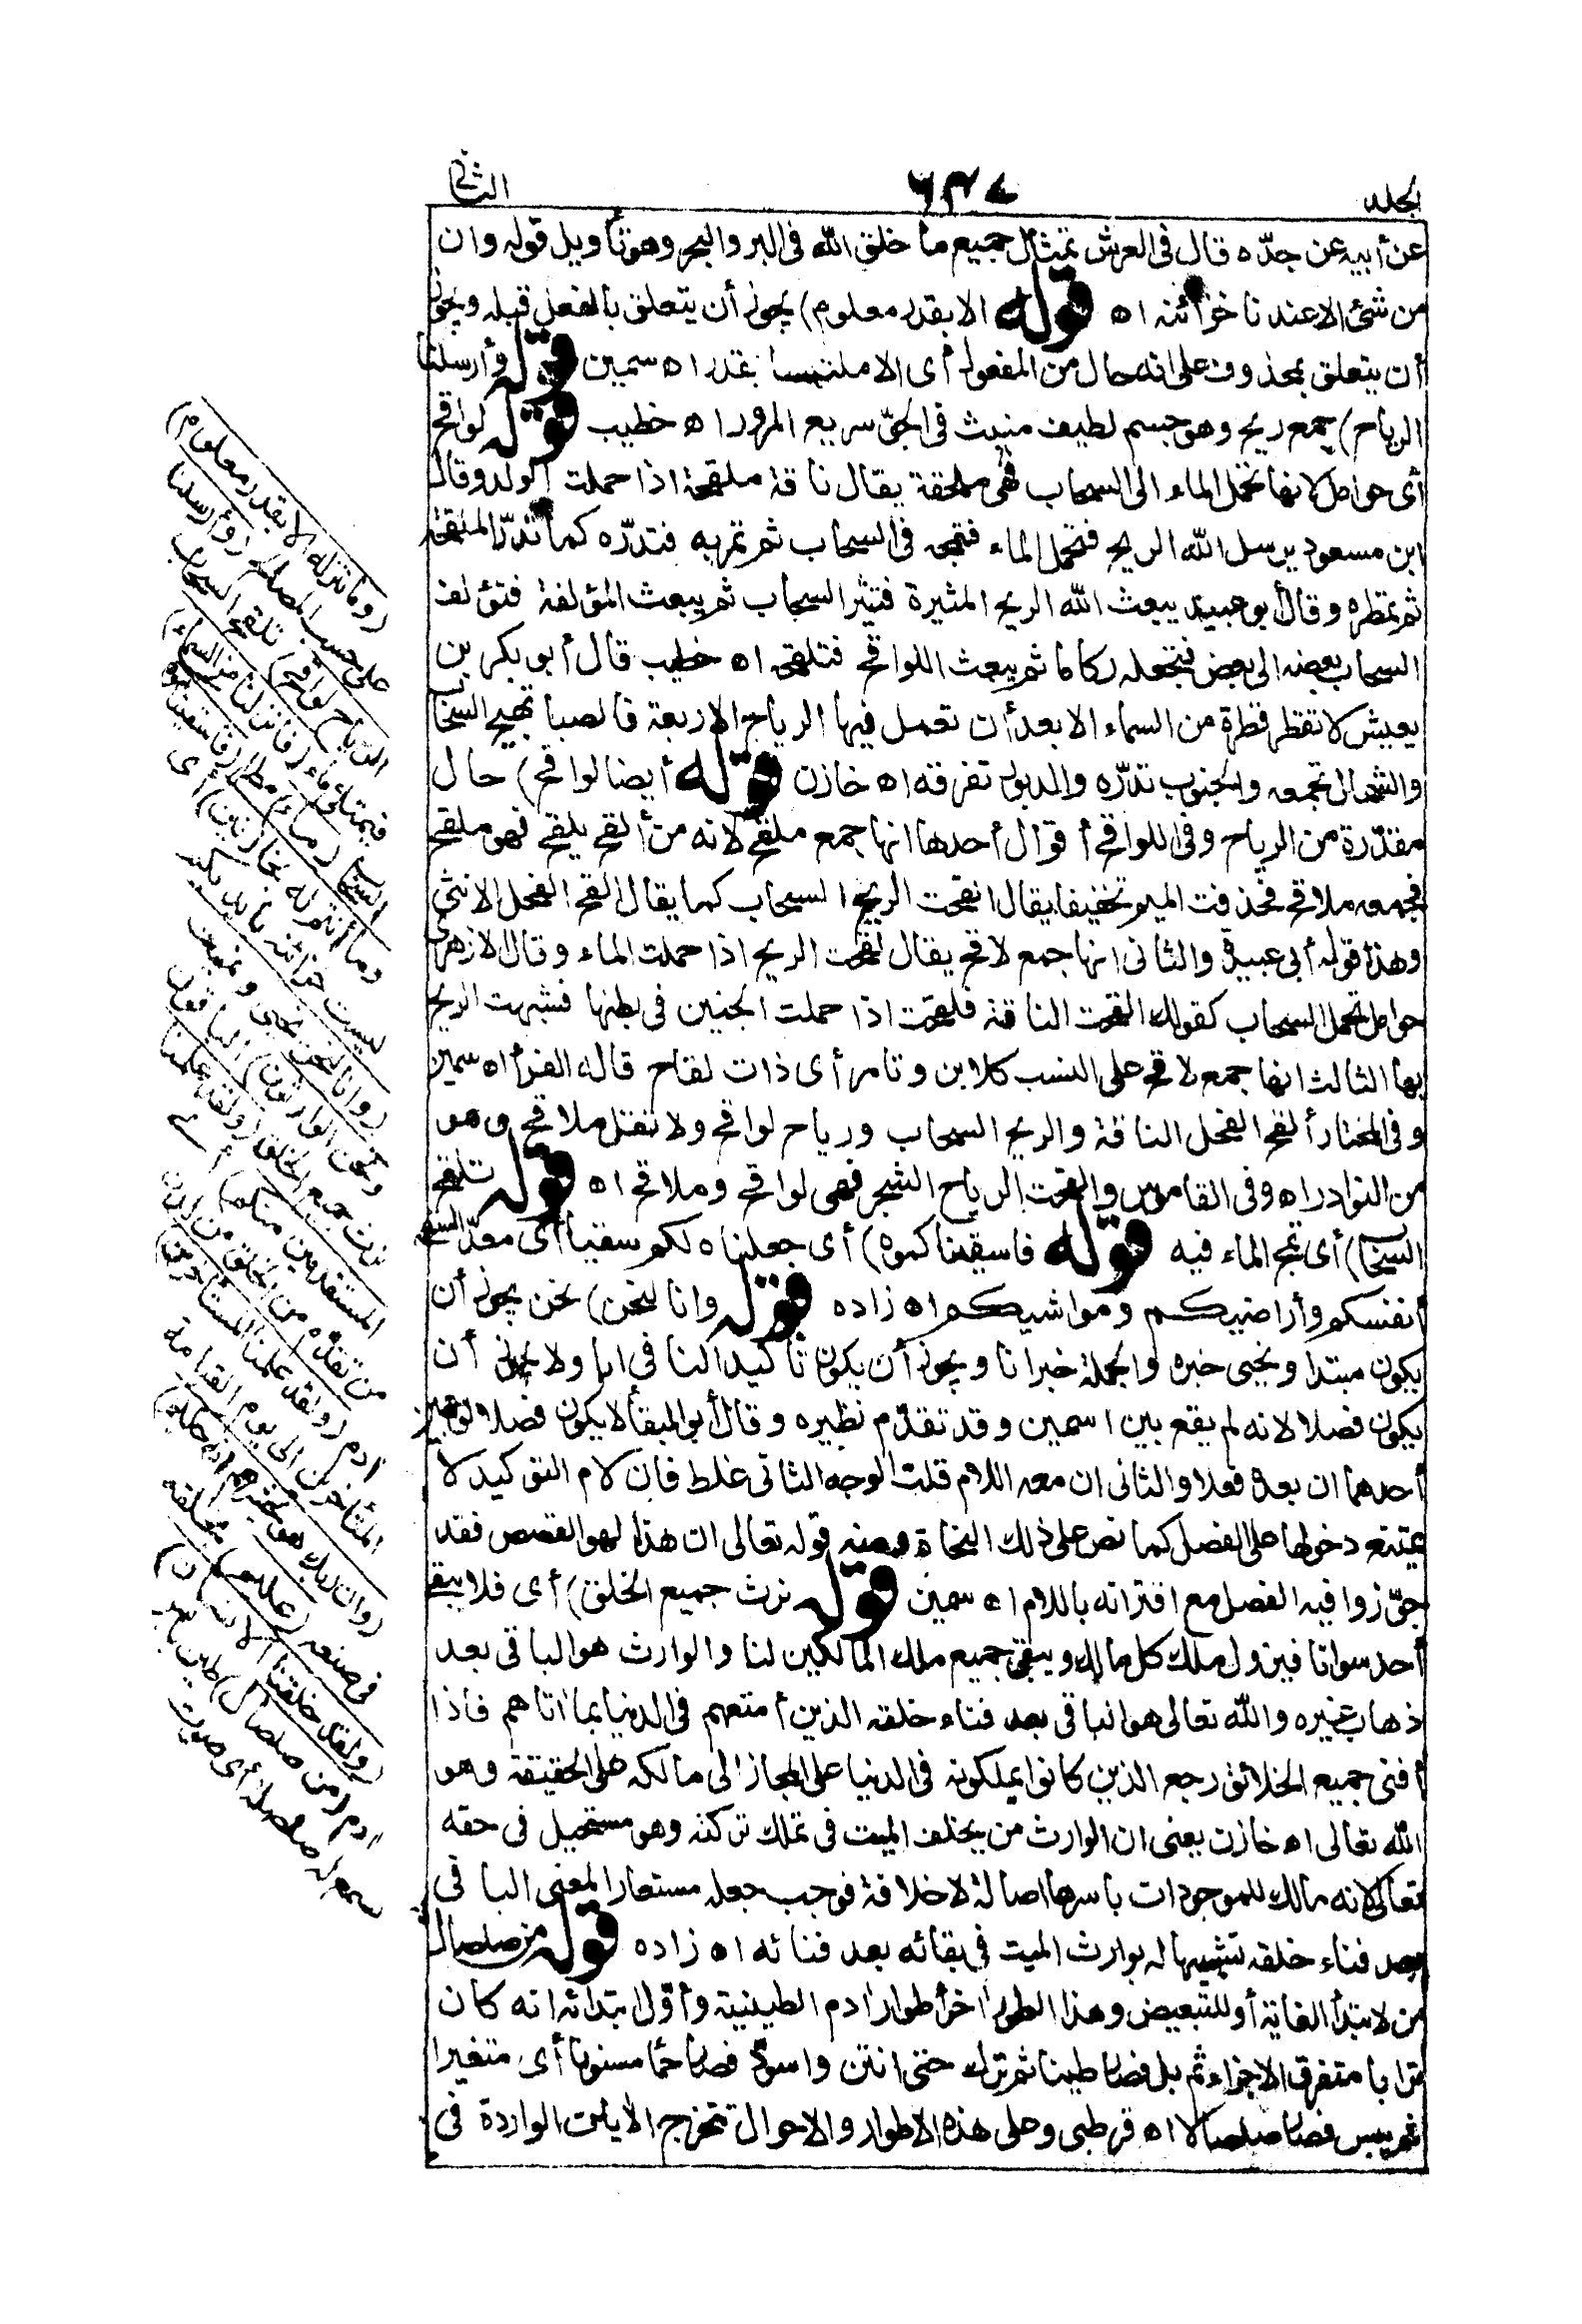 الجلد
٦٣٧
الثانی
عن أبيه عن جدّه قال فى العرش تمثال جميع ما خلق الله فى البر والبحر وهو تأويل قوله وان
من شئ الا عندنا خزائنه اه قوله الا بقدر معلوم) يجوز أن يتعلق بالفعل قبله ويجوز
أن يتعلق بمحذوف على انه حال من المفعول أى الا ملتبسا بقدر اه سمين قوله وأرسلنا
الرياح) جمع ريح وهو جسم لطيف منبث فى الجوّ سريع المرور اه خطيب قوله لواقح
أى حوامل لانها تحمل الماء الى السحاب فهى ملحقة يقال ناقة ملقحة اذا حملت الولد وقال
ابن مسعود يرسل الله الريح فتحمل الماء فتمجه فى السحاب ثم تمر به فتدرّه كما تدرّ الملقحة
ثم تمطره وقال أبو عبيد يبعث الله الريح المثيرة فتثير السحاب ثم يبعث المؤلفة فتؤلف
السحاب بعضه الى بعض فتجعله ركاما ثم يبعث اللواقح فتلقحه اه خطيب قال أبو بكر بن
يعيش لا تقطر قطرة من السماء الا بعد أن تعمل فيها الرياح الاربعة فالصبا تهيج السحاب
والشمال تجمعه والجنوب تدرّه والدبور تفرقه اه خازن قوله أيضا لواقح) حال
مقدّرة من الرياح وفى اللواقح أقوال أحدها انها جمع ملقح لانه من ألقح يلقح فهو ملقح
فجمعه ملاقح فحذفت الميم تخفيفا يقال القحت الريح السحاب كما يقال القح الفحل الانثى
وهذا قول أبى عبيدة والثانى انها جمع لاقح يقال لقحت الريح اذا حملت الماء وقال الازهرى
حوامل تحمل السحاب كقولك القحت الناقة فلقحت اذا حملت الجنين فى بطنها فشبهت الريح
بها الثالث انها جمع لاقح على النسب كلابن وتامر أى ذات لقاح قاله الفرأ اه سمين
وفى المختار ألقح الفحل الناقة والريح السحاب ورياح لواقح ولا تقل ملاقح وهو
من النوادر اه وفى القاموس وألقحت الرياح الشجر فهى لواقح وملاقح اه قوله تلقح
السحاب) أى تمج الماء فيه قوله فاسقيناكموه) أى جعلناه لكم سقيا أى معدّا لسقى
أنفسكم وأراضيكم ومواشيكم اه زاده قوله وانا لنحن) نحن يجوز أن
يكون مبتدا ونحيى خبره والجملة خبر انا ويجوز أن يكون تأكيدا لنا فى انا ولا يجوز أن
يكون فصلا لانه لم يقع بين اسمين وقد تقدّم نظيره وقال أبو البقأ لا يكون فصلا لوجهين
أحدهما ان بعده فعلا والثانى ان معه اللام قلت الوجه الثانى غلط فان لام التوكيد لا
يمتنع دخولها على الفصل كما نص على ذلك النحاة ومنه قوله تعالى ان هذا لهو القصص فقد
جوّزوا فيه الفصل مع اقترانه باللام اه سمين قوله نرث جميع الخلق) أى فلا يبقى
أحد سوانا فيزول ملك كل مالك ويبقى جميع ملك المالكين لنا والوارث هو الباقى بعد
ذهاب غيره والله تعالى هو الباقى بعد فناء خلقه الذين أمتعهم فى الدنيا بما اتاهم فاذا
أفنى جميع الخلائق رجع الذين كانوا يملكونه فى الدنيا على المجاز الى مالكه على الحقيقة وهو
الله تعالى اه خازن يعنى ان الوارث من يخلف الميت فى تملك تركته وهو مستحيل فى حقه
تعالى لانه مالك للموجودات باسرها اصالة لا خلافة فوجب جعله مستعارا لمعنى الباقى
بعد فناء خلقه تشبيها له بوارث الميت فى بقائه بعد فنائه اه زاده قوله من صلصال
من لابتدأ الغاية أو للتبعيض وهذا الطور اخر أطوار ادم الطينية وأوّل ابتدائه انه كان
ترابا متفرق الاجزاء ثم بل فصار طينا ثم ترك حتى انتن واسودّ فصار حمأ مسنونا أى متغيرا
ثم يبس فصار صلصالا اه قرطبى وعلى هذه الاطوار والاحوال تتخرج الآيات الواردة فى
(وما ننزله الا بقدر معلوم)
على حسب المصالح (وأرسلنا
الرياح لواقح) تلقح السحاب
فيمتلئ ماء (فانزلنا من السماء)
السحاب (ماء) مطرا (فاسقيناكموه
وما أنتم له بخازنين) أى
ليست خزائنه بايديكم
(وانا لنحن نحيى ونميت
ونحن الوارثون) الباقون
نرث جميع الخلق (ولقد علمنا
المستقدمين منكم) أى
من تقدّم من الخلق من لدن
ادم (ولقد علمنا المستأخرين)
المتأخرين الى يوم القيامة
(وان ربك هو يحشرهم انه حكيم)
فى صنعه (عليم) بخلقه
(ولقد خلقنا الانسان)
ادم (من صلصال) طين يابس
يسمع له صلصلة أى صوت